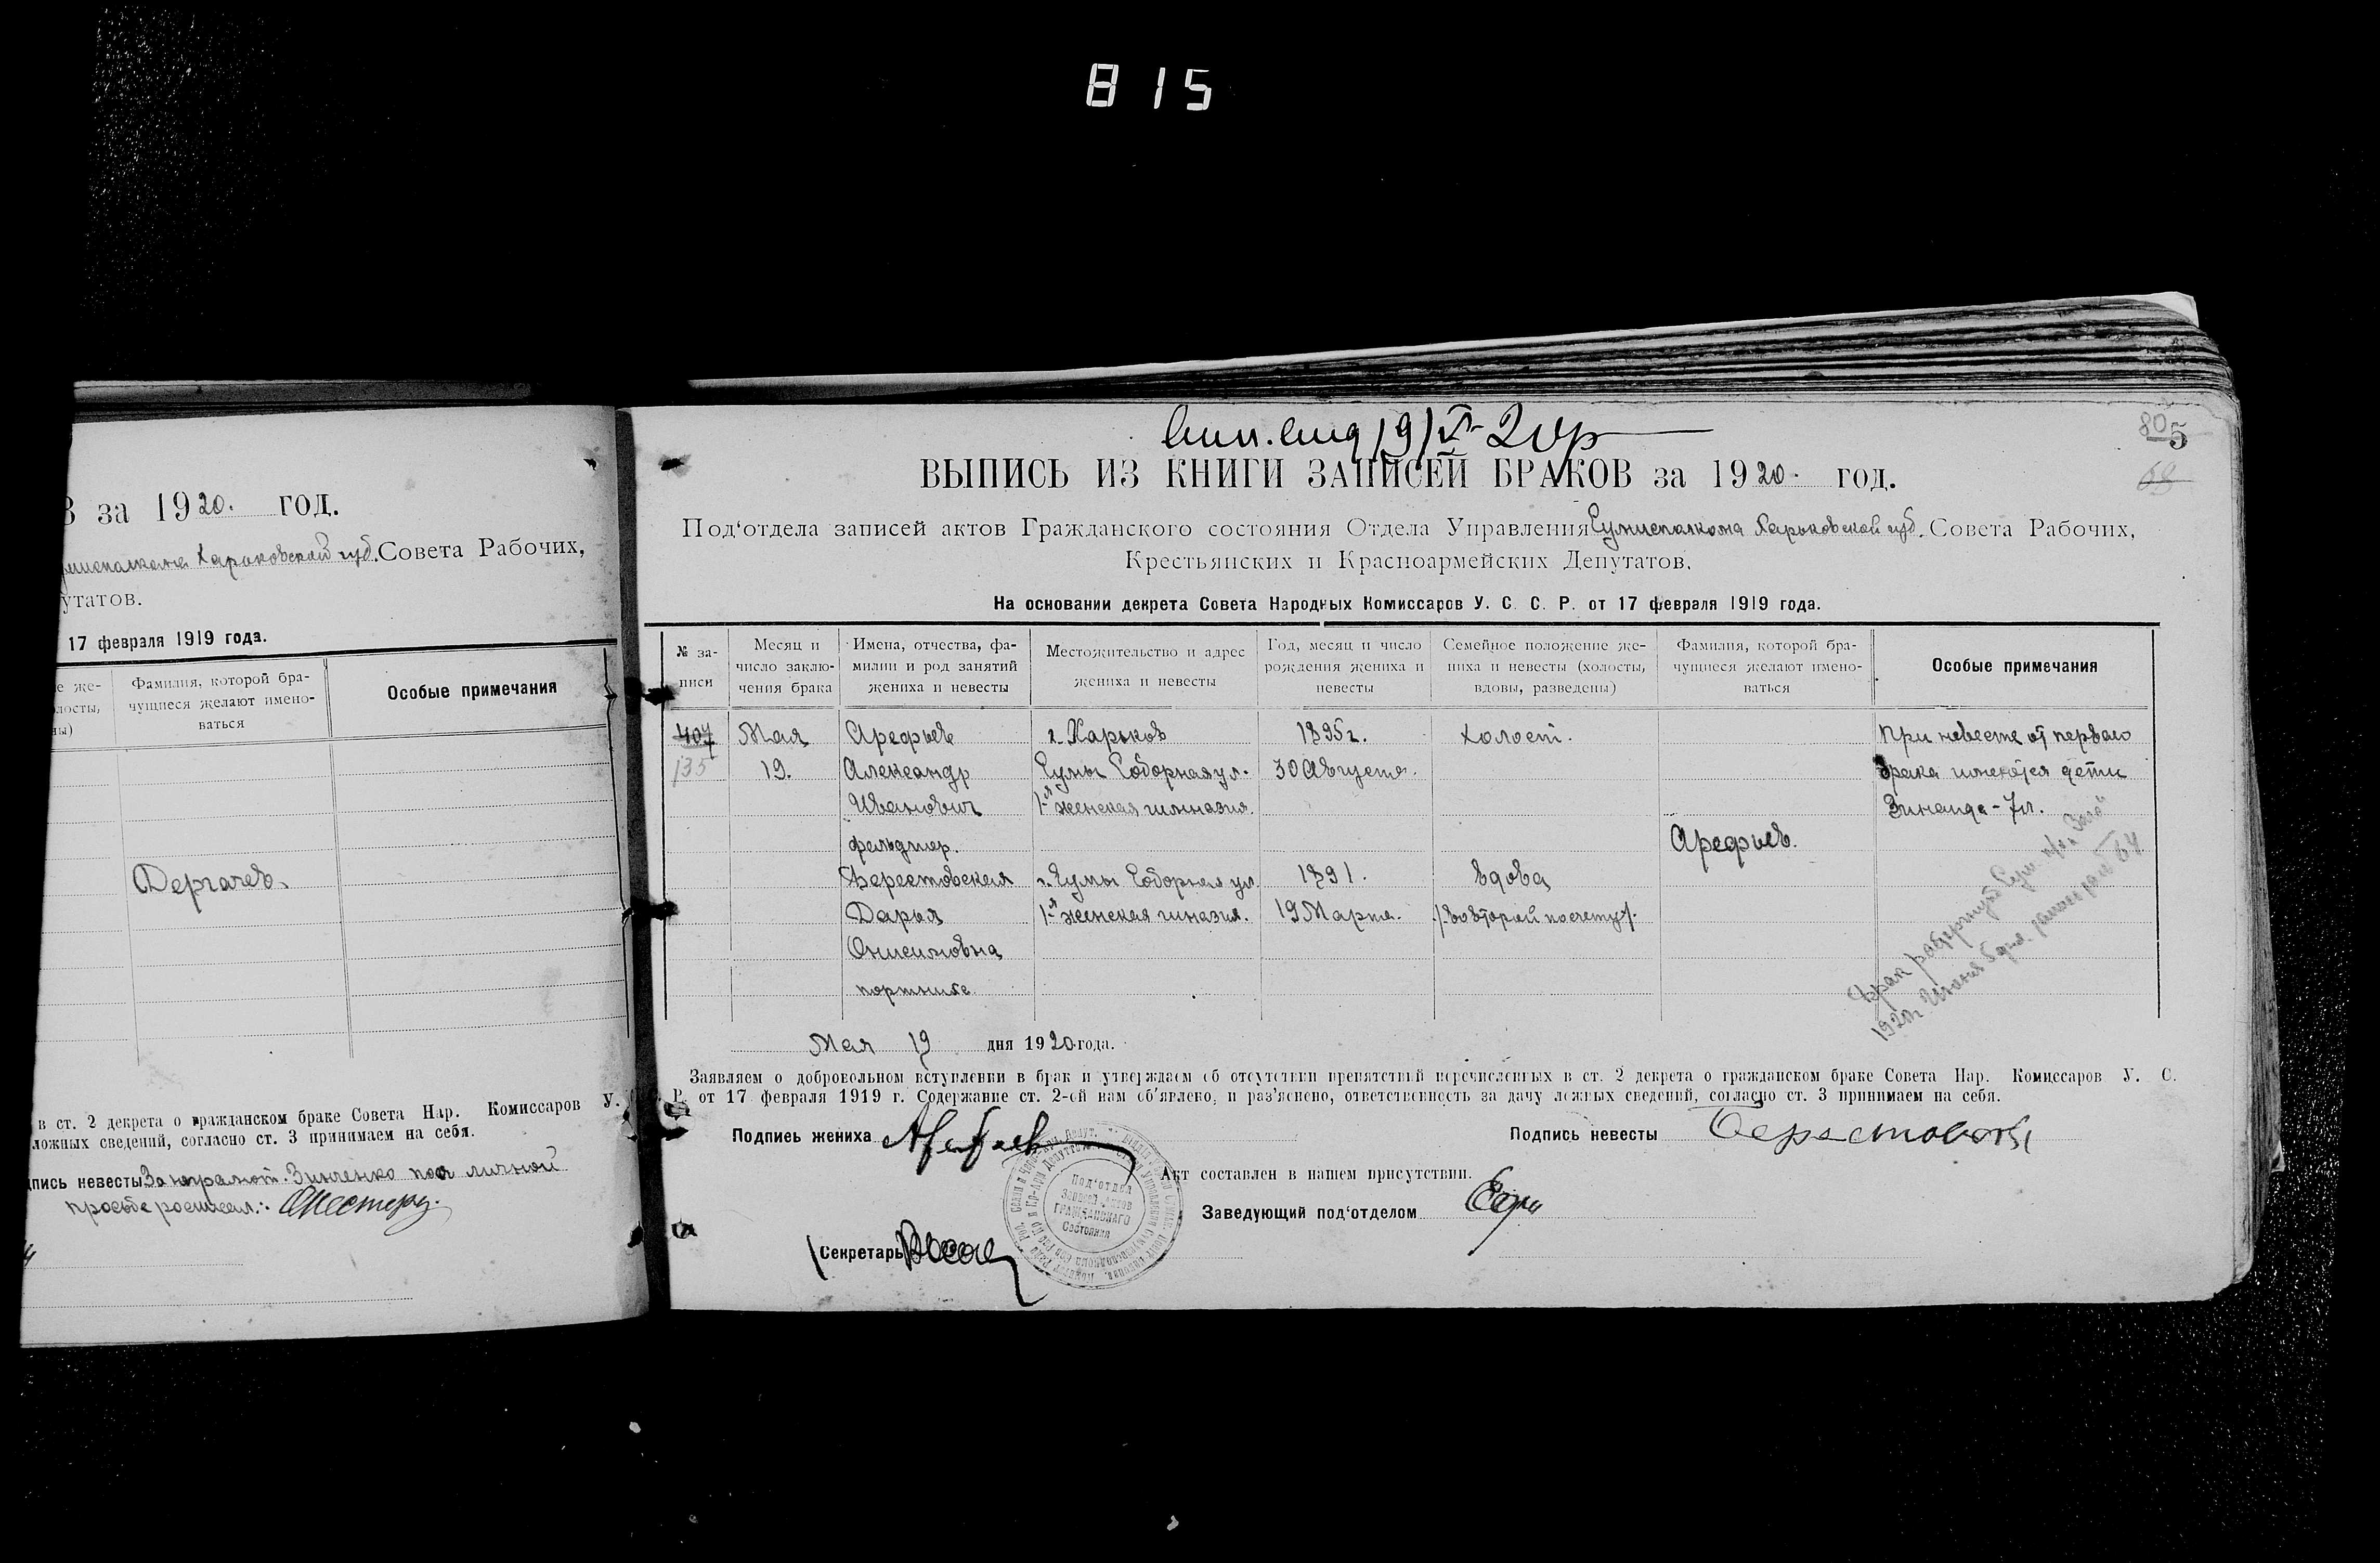 815
В за 1920. год.
Харьковской губ. Совета Рабочих,
утатов.
17 февраля 1919 года.
е же-
лосты,
ны)
Фамилия, которой бра-
чущиеся желают имено-
ваться
Особые примечания
Дергачев.
в ст. 2 декрета о гражданском браке Совета Нар. Комиссаров У.
ложных сведений, согласно ст. 3 принимаем на себя.
пись невесты За неграмот. Зинченко по личной
просьбе
80
5
69
ВЫПИСЬ ИЗ КНИГИ ЗАПИСЕЙ БРАКОВ за 1920. год.
Под‘отдела записей актов Гражданского состояния Отдела Управления Сумисполкома Харьковской губ. Совета Рабочих,
Крестьянских и Красноармейских Депутатов.
На основании декрета Совета Народных Комиссаров У. С. С. Р. от 17 февраля 1919 года.
№ за-
писи
Месяц и
число заклю-
чения брака
Имена, отчества, фа-
милии и род занятий
жениха и невесты
Местожительство и адрес
жениха и невесты
Год, месяц и число
рождения жениха и
невесты
Семейное положение же-
ниха и невесты (холосты,
вдовы, разведены)
Фамилия, которой бра-
чущиеся желают имено-
ваться
Особые примечания
407 Мая Арефьев г. Харьков 1895 г. холост. При невесте от первого
135 19. Александр Сумы Соборная ул. 30 Августа. брака имеются дети
Иванович 1-я женская гимназия. Зинаида - 7 л.
фельдшер. Арефьев.
Берестовская г. Сумы Соборная ул. 1891. вдова
Дарья 1-я женская гимназия. 19 Марта. /во второй по счету/.
Онисимовна
портниха
Брак расторгнут
1920 г. Июня
Мая 19 дня 1920 года.
Заявляем о добровольном вступлении в брак и утверждаем об отсутствии препятствий перечисленных в ст. 2 декрета о гражданском браке Совета Нар. Комиссаров У. С.
Р. от 17 февраля 1919 г. Содержание ст. 2-ой нам об‘явлено, и раз‘яснено, ответственность за дачу ложных сведений, согласно ст. 3 принимаем на себя.
Подпись жениха Арефьев Подпись невесты
Акт составлен в нашем присутствии.
Под‘отдел
Записей актов
ГРАЖДАНСКАГО
Состояния
Заведующий под‘отделом
Секретарь